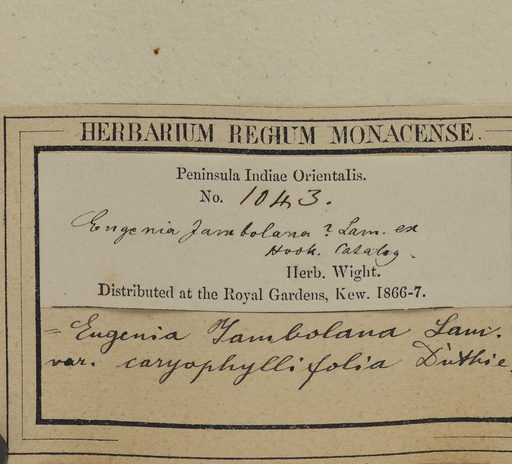 HERBARIUM REGIUM MONACENSE.
Peninsula Indiae Orientalis.
No. 1043.
Eugenia Jambolana? Lam. ex
Hook. Catalog.
Herb. Wight.
Distributed at the Royal Gardens, Kew. 1866-7.
= Eugenia Jambolana Lam.
var. caryophyllifolia Duthie.